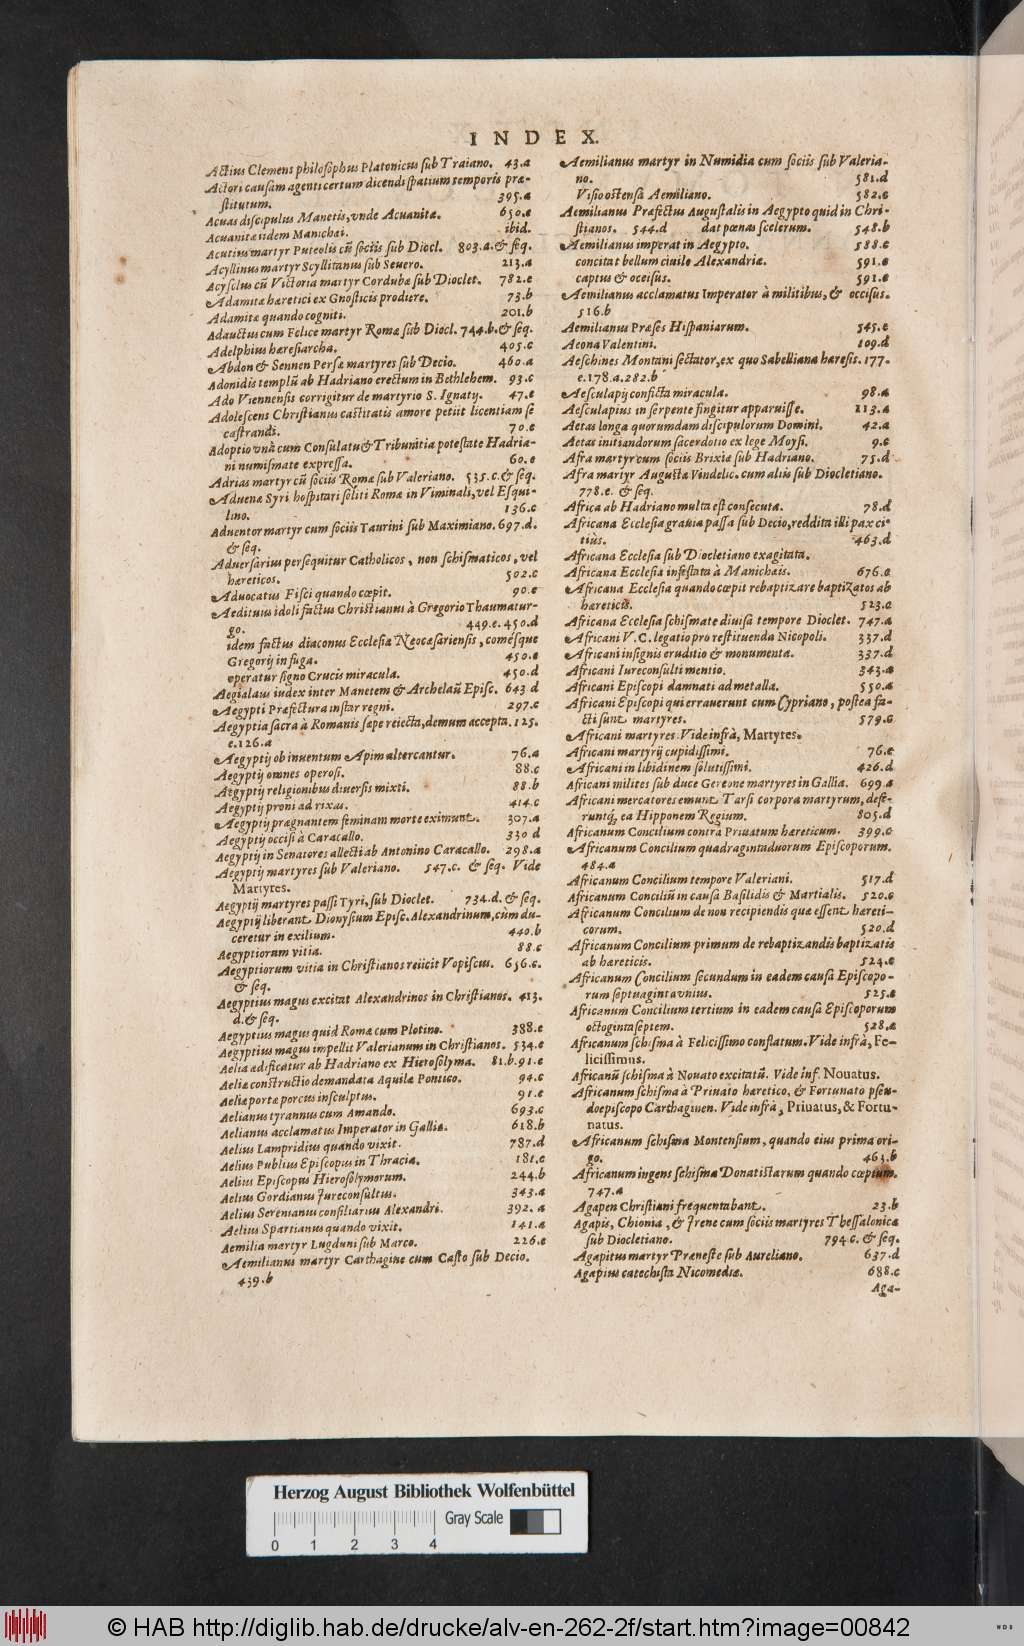 INDEX.
Actius Clemens philosophus Platonicus sub Traiano. 43.a
Actori causam agenti certum dicendi spatium temporis præ-
stitutum. 395.a
Acuas discipulus Manetis, vnde Acuanitæ. 650.e
Acuanitæ iidem Manichai. ibid.
Acutius martyr Puteolis cũ sociis sub Diocl. 803.a.& seq.
Acyllinus martyr Scyllitanus sub Seuero. 213.a
Acysclus cũ Victoria martyr Cordubæ sub Dioclet. 782.e
Adamitæ hæretici ex Gnosticis prodiere. 73.b
Adamitæ quando cogniti. 201.b
Adauctus cum Felice martyr Romæ sub Diocl. 744.b.& seq.
Adelphius hæresiarcha. 405.c
Abdon & Sennen Persæ martyres sub Decio. 460.a
Adonidis templũ ab Hadriano erectum in Bethlehem. 93.c
Ado Viennensis corrigitur de martyrio S. Ignatij. 47.e
Adolescens Christianus castitatis amore petiit licentiam se
castrandi. 70.e
Adoptio vnà cum Consulatu & Tribunitia potestate Hadria-
ni numismate expressa. 60.e
Adrias martyr cũ sociis Romæ sub Valeriano. 535.c.& seq.
Aduenæ Syri hospitari soliti Romæ in Viminali, vel Esqui-
lino. 136.c
Aduentor martyr cum sociis Taurini sub Maximiano. 697.d.
& seq.
Aduersarius persequitur Catholicos, non schismaticos, vel
hæreticos. 502.c
Aduocatus Fisci quando cœpit. 90.e
Aedituus idoli factus Christianus à Gregorio Thaumatur-
go. 449.e.450.d
idem factus diaconus Ecclesiæ Neocæsariensis, comésque
Gregorij in fuga. 450.e
operatur signo Crucis miracula. 450.d
Aegialaus iudex inter Manetem & Archelaũ Episc. 643 d
Aegypti Præfectura instar regni. 297.c
Aegyptia sacra à Romanis sæpe reiecta, demum accepta. 125.
e.126.a
Aegyptij ob inuentum Apim altercantur. 76.a
Aegyptij omnes operosi. 88.c
Aegyptij religionibus diuersis mixti. 88.b
Aegyptij proni ad rixas. 414.c
Aegyptij prægnantem feminam morte eximunt. 307.a
Aegyptij occisi à Caracallo. 330 d
Aegyptij in Senatores allecti ab Antonino Caracallo. 298.a
Aegyptij martyres sub Valeriano. 547.c. & seq. Vide
Martyres.
Aegyptij martyres passi Tyri, sub Dioclet. 734.d.& seq.
Aegyptij liberant Dionysium Episc. Alexandrinum, cùm du-
ceretur in exilium. 440.b
Aegyptiorum vitia. 88.c
Aegyptiorum vitia in Christianos reiicit Vopiscus. 656.c.
& seq.
Aegyptius magus excitat Alexandrinos in Christianos. 413.
d.& seq.
Aegyptius magus quid Romæ cum Plotino. 388.e
Aegyptius magus impellit Valerianum in Christianos. 534.e
Aelia ædificatur ab Hadriano ex Hierosolyma. 81.b.91.e
Aeliæ constructio demandata Aquilæ Pontico. 94.c
Aeliæ portæ porcus insculptus. 91.e
Aelianus tyrannus cum Amando. 693.c
Aelianus acclamatus Imperator in Gallia. 618.b
Aelius Lampridius quando vixit. 787.d
Aelius Publius Episcopus in Thracia. 181.c
Aelius Episcopus Hierosolymorum. 244.b
Aelius Gordianus Jureconsultus. 343.a
Aelius Serenianus consiliarius Alexandri. 392.a
Aelius Spartianus quando vixit. 141.a
Aemilia martyr Lugduni sub Marco. 226.e
Aemilianus martyr Carthagine cum Casto sub Decio.
439.b
Aemilianus martyr in Numidia cum sociis sub Valeria-
no. 581.d
Visio ostensa Aemiliano. 582.c
Aemilianus Præfectus Augustalis in Aegypto quid in Chri-
stianos. 544.d dat pœnas scelerum. 548.b
Aemilianus imperat in Aegypto. 588.c
concitat bellum ciuile Alexandriæ. 591.e
captus & occisus. 591.e
Aemilianus acclamatus Imperator à militibus, & occisus.
516.b
Aemilianus Præses Hispaniarum. 545.e
Aeona Valentini. 109.d
Aeschines Montani sectator, ex quo Sabelliana hæresis. 177.
e.178.a.282.b
Aesculapij conficta miracula. 98.a
Aesculapius in serpente fingitur apparuisse. 213.a
Aetas longa quorumdam discipulorum Domini. 42.a
Aetas initiandorum sacerdotio ex lege Moysi. 9.c
Afra martyr cum sociis Brixiæ sub Hadriano. 75.d
Afra martyr Augustæ Vindelic. cum aliis sub Diocletiano.
778.e. & seq.
Africa ab Hadriano multa est consecuta. 78.d
Africana Ecclesia grauia passa sub Decio, reddita illi pax ci-
tiùs. 463.d
Africana Ecclesia sub Diocletiano exagitata.
Africana Ecclesia infestata à Manichæis. 676.e
Africana Ecclesia quando cœpit rebaptizare baptizatos ab
hæreticis. 523.c
Africana Ecclesia schismate diuisa tempore Dioclet. 747.a
Africani V.C. legatio pro restituenda Nicopoli. 337.d
Africani insignis eruditio & monumenta. 337.d
Africani Iureconsulti mentio. 343.a
Africani Episcopi damnati ad metalla. 550.a
Africani Episcopi qui errauerunt cum Cypriano, postea fa-
cti sunt martyres. 579.c
Africani martyres. Vide infrà, Martyres.
Africani martyrij cupidissimi. 76.c
Africani in libidinem solutissimi. 426.d
Africani milites sub duce Gereone martyres in Gallia. 699.a
Africani mercatores emunt Tarsi corpora martyrum, defe-
runtq́, ea Hipponem Regium. 805.d
Africanum Concilium contra Priuatum hæreticum. 399.c
Africanum Concilium quadragintaduorum Episcoporum.
484.a
Africanum Concilium tempore Valeriani. 517.d
Africanum Conciliũ in causa Basilidis & Martialis. 520.c
Africanum Concilium de non recipiendis quæ essent hæreti-
corum. 520.d
Africanum Concilium primum de rebaptizandis baptizatis
ab hæreticis. 524.e
Africanum Concilium secundum in eadem causa Episcopo-
rum septuagintavnius. 525.e
Africanum Concilium tertium in eadem causa Episcoporum
octogintaseptem. 528.a
Africanum schisma à Felicissimo conflatum. Vide infrà, Fe-
licissimus.
Africanũ schisma à Nouato excitatũ. Vide inf. Nouatus.
Africanum schisma à Priuato hæretico, & Fortunato pseu-
doepiscopo Carthaginen. Vide infrà, Priuatus, & Fortu-
natus.
Africanum schisma Montensium, quando eius prima ori-
go. 463.b
Africanum ingens schisma Donatistarum quando cœptum.
747.a
Agapen Christiani frequentabant. 23.b
Agapis, Chionia, & Irene cum sociis martyres Thessalonicæ
sub Diocletiano. 794.c. & seq.
Agapitus martyr Præneste sub Aureliano. 637.d
Agapius catechista Nicomediæ. 688.c
Aga-
Herzog August Bibliothek Wolfenbüttel
Gray Scale
0 1 2 3 4
© HAB http://diglib.hab.de/drucke/alv-en-262-2f/start.htm?image=00842